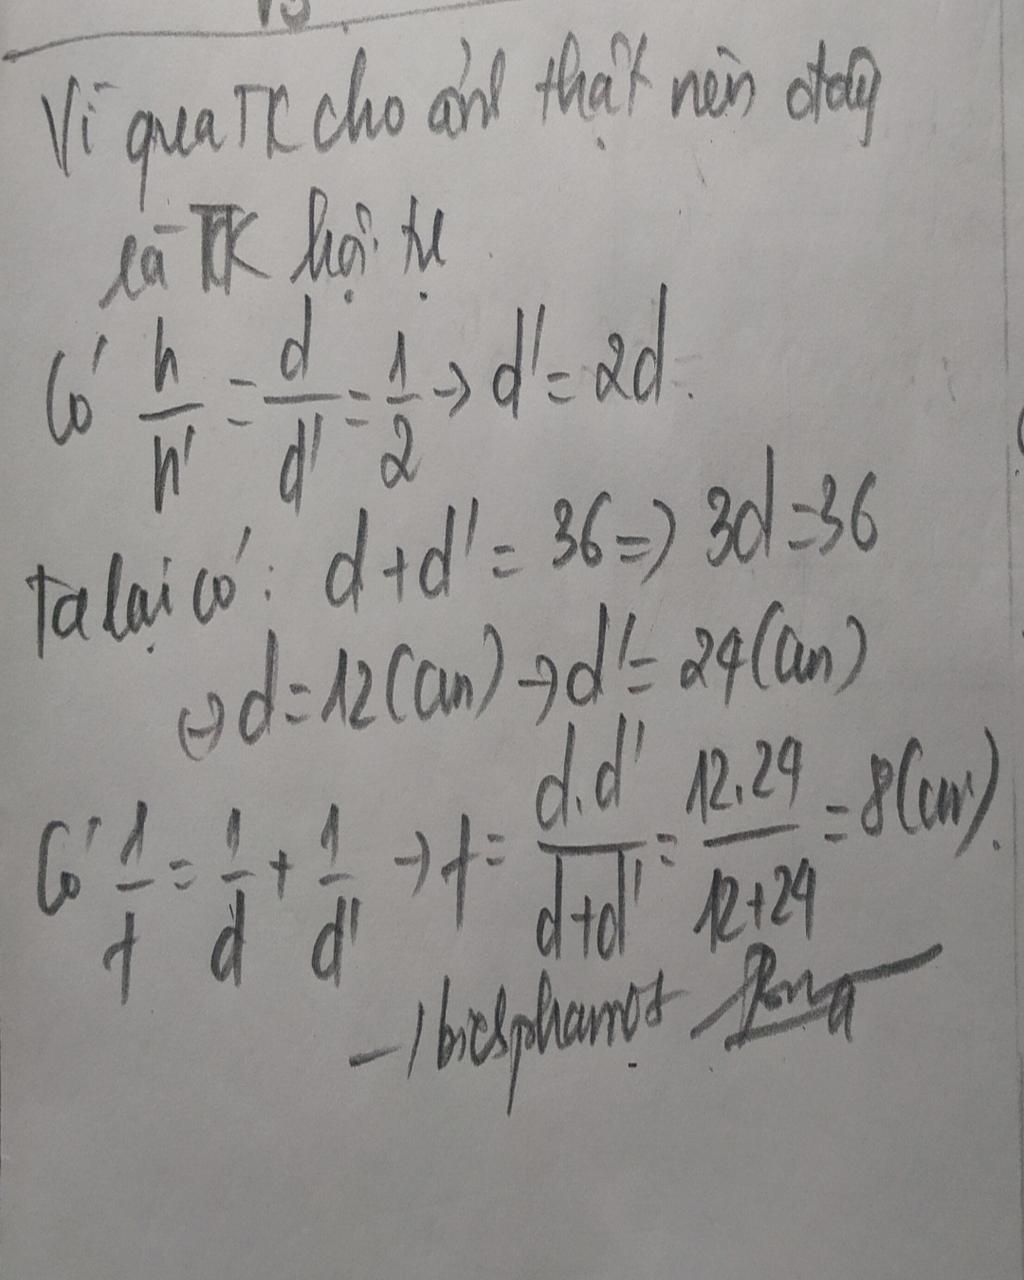 Vì qua TK cho ảnh thật nên đây
là TK hội tụ
Có h/h' = d/d' = 1/2 → d' = 2d.
Ta lại có: d + d' = 36 => 3d = 36
⇔ d = 12 (cm) → d' = 24 (cm)
Có 1/f = 1/d + 1/d' → f = d.d'/d+d' = 12.24/12+24 = 8 (cm).